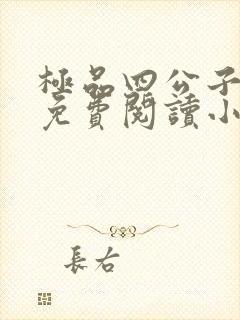 極品四公子
免費閱讀小
長右